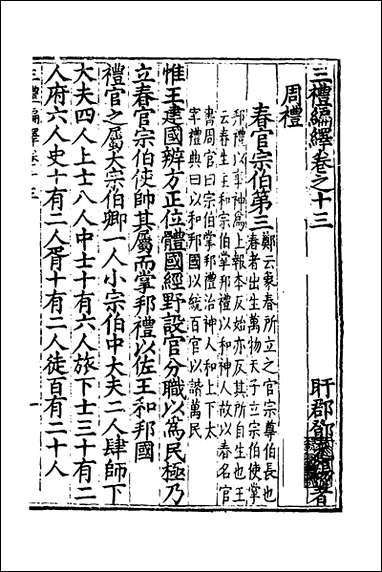 三禮編繹卷之十三
周禮
盱郡鄧 著
春官宗伯第三
鄭云象春所立之官宗尊伯長也
春者出生萬物天子立宗伯使掌
邦禮以事神爲上報本反始亦反其所自生也王
云春生主和宗伯掌邦禮以和神人故以春名官
書周官曰宗伯掌邦禮治神人和上下太
宰禮典曰以和邦國以統百官以諧萬民
惟王建國辨方正位體國經野設官分職以爲民極乃
立春官宗伯使帥其屬而掌邦禮以佐王和邦國
禮官之屬大宗伯卿一人小宗伯中大夫二人肆師下
大夫四人上士八人中士十有六人旅下士三十有二
人府六人史十有二人胥十有二人徒百有二十人
三禮編繹卷十三
一